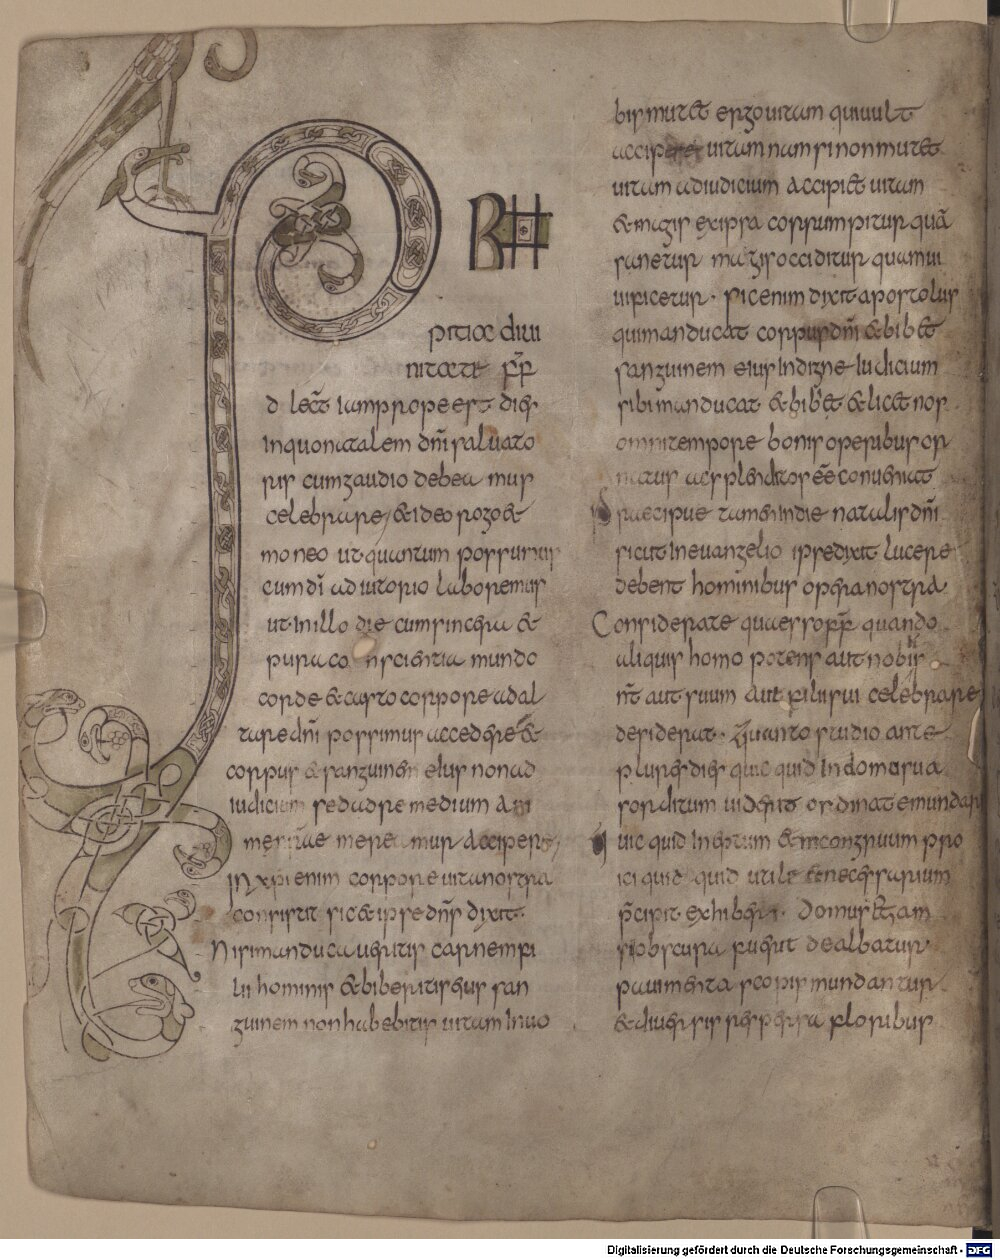 PRO
pitiae divi
nitate f̄r̄
dilec̄t iam prope est dies
in quo natalem dn̄i salvato
ris cum gaudio debea mus
celebrare, & ideo rogo &
moneo ut quantum possumus
cum dī adiutorio laboremus
ut in illo die cum sincera &
pura co nscientia mundo
corde & casto corpore adal
tare dn̄i possimus accedere &
corpus & sanguinem eius non ad
iudicium sed ad remedium ani
mere mur accipere,
in xp̄i enim corpore vita nostra
consistit sic & ipse dn̄s dixit.
Nisi manducaveritis carnem fi
lii hominis & biberitis eius san
guinem non habebitis vitam in vo
bis mutet ergo vitam qui vult
accipere vitam nam si non mutet
vitam ad iudicium accipiet vitam
& magis ex ipsa corrumpitur quā
sanetur magis occiditur quam vi
vificetur. sic enim dixit apostolus
qui manducat corpus dn̄i & bibet
sanguinem eius indigne iudicium
sibi manducat & bibet & licet nos
omni tempore bonis operibus or
natus ac splenditos eē̄ conveniat
praecipue tamen in die natalis dn̄i
sicut in evangelio ipse dixit lucere
debent hominibus opera nostra
Considerate quaesso f̄r̄ quando
aliquis homo potens aut nobis
n̄t aut suum aut filii sui celebrare
desiderat. quanto studio ante
plures dies quic quid in domu sua
sorditum viderit ordinat emundari
quic quid ineptum & incongruum pro
ici quid quid utile & necessarium
p̄cipit exhiberi. domus etiam
si obscura fuerit dealbatur
pavimenta scopis mundantur
& diversis respersa floribus
Digitalisierung gefördert durch die Deutsche Forschungsgemeinschaft - DFG